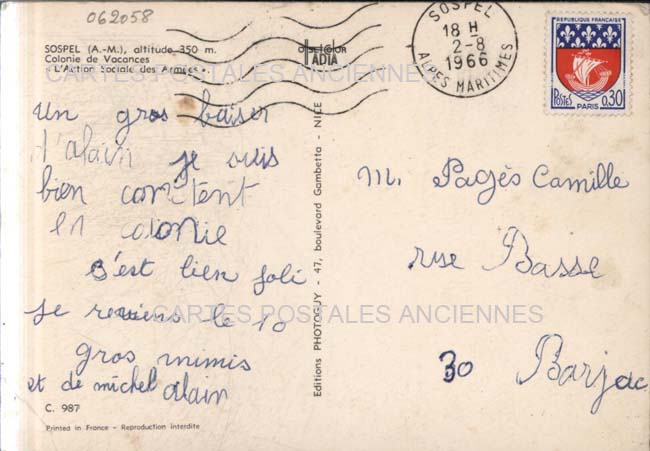 062058
SOSPEL (A.-M.), altitude 350 m.
Colonie de Vacances
« L'Action Sociale des Armées ».
CARTES POSTALES ANCIENNES
SOSPEL
18 H
2-8
1966
ALPES MARITIMES
REPUBLIQUE FRANÇAISE
POSTES
0,30
PARIS
un gros baiser
d'alain je suis
bien content
en colonie
c'est bien joli
je reviens le 10
gros mimis
et de michel alain
C. 987
Printed in France - Reproduction interdite
Editions PHOTOGUY - 47, boulevard Gambetta - NICE
M. Pagès Camille
rue Basse
30 Barjac
CARTES POSTALES ANCIENNES